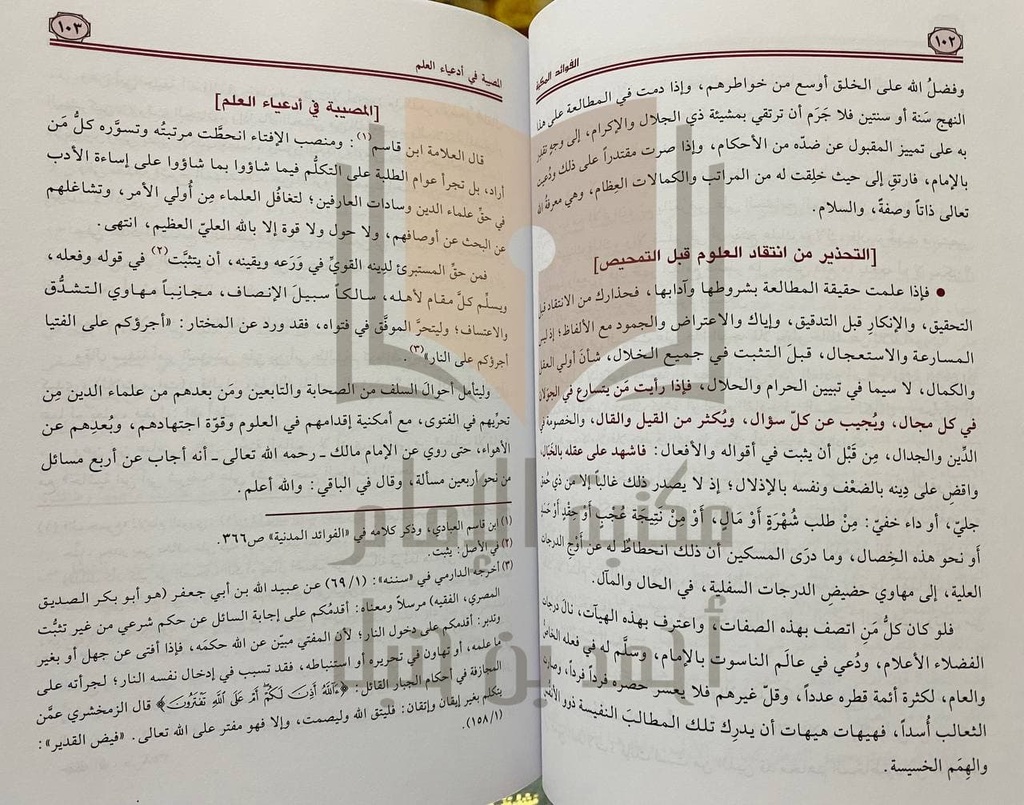 ١٠٢
الفوائد المكية
وفضلُ الله على الخلق أوسع من خواطرهم، وإذا دمت في المطالعة على هذا
النهج سَنة أو سنتين فلا جَرَم أن ترتقي بمشيئة ذي الجلال والإكرام، إلى وجهٍ تقتدر
به على تمييز المقبول عن ضدّه من الأحكام، وإذا صرت مقتدراً على ذلك ودُعِيتَ
بالإمام، فارتقِ إلى حيث خلِقت له من المراتب والكمالات العِظام، وهي معرفةُ الله
تعالى ذاتاً وصفةً، والسلام.
[التحذير من انتقاد العلوم قبل التمحيص]
• فإذا علمت حقيقة المطالعة بشروطها وآدابها، فحذارك من الانتقاد قبل
التحقيق، والإنكارِ قبل التدقيق، وإياك والاعتراض والجمود مع الألفاظ؛ إذ ليس
المسارعة والاستعجال، قبلَ التثبت في جميع الخلال، شأنَ أولي العقل
والكمال، لا سيما في تبيين الحرام والحلال، فإذا رأيت مَن يتسارع في الجوَلان
في كل مجال، ويُجيب عن كلّ سؤال، ويُكثر من القيل والقال، والخصومة في
الدِّين والجدال، مِن قَبْل أن يثبت في أقواله والأفعال: فاشهد على عقله بالخَبَال،
واقض على دِينه بالضعْف ونفسه بالإذلال؛ إذ لا يصدر ذلك غالباً إلا من ذي حُمق
جليّ، أو داء خفيّ: مِنْ طلب شُهْرَةٍ أَوْ مَالٍ، أَوْ مِنْ نَتِيجَة عُجْبٍ أَوْ حِقْدٍ أَوْ حَسَدٍ
أَو نحو هذه الخِصال، وما درَى المسكين أن ذلك انحطاطٌ له عن أوْجِ الدرجات
العلية، إلى مهاوي حضيضِ الدرجات السفلية، في الحال والمآل.
فلو كان كلُّ مَنِ اتصف بهذه الصفات، واعترف بهذه الهيآت، نالَ درجات
الفضلاء الأعلام، ودُعي في عالَم الناسوت بالإمام، وسلَّم له في فعله الخاصُّ
والعام، لكثرة أئمة قطره عدداً، وقلّ غيرهم فلا يعسر حصره فرداً فرداً، وصارت
الثعالب أُسداً، فهيهات هيهات أن يدرِك تلك المطالبَ النفيسة ذوو الأنفس
والهِمَم الخسيسة.
١٠٣
المصيبة في أدعياء العلم
[المصيبة في أدعياء العلم]
قال العلامة ابن قاسم(١): ومنصب الإفتاء انحطَّت مرتبتُه وتسوَّره كلُّ مَن
أراد، بل تجرأ عوام الطلبة على التكلُّم فيما شاؤوا بما شاؤوا على إساءة الأدب
في حقِّ علماء الدين وسادات العارفين؛ لتغافُل العلماء مِن أُولي الأمر، وتشاغلهم
عن البحث عن أوصافهم، ولا حول ولا قوة إلا بالله العليّ العظيم، انتهى.
فمن حقِّ المستبرئ لدِينه القويِّ في وَرَعه ويقينه، أن يتثبَّت(٢) في قوله وفعله،
ويسلّم كلَّ مقام لأهله، سالكاً سبيلَ الإنصاف، مجانِباً مهاوي التشدُّق
والاعتساف؛ وليتحرَّ الموفَّق في فتواه، فقد ورد عن المختار: «أجرؤكم على الفتيا
أجرؤكم على النار»(٣).
وليتأمل أحوالَ السلف من الصحابة والتابعين ومَن بعدهم من علماء الدين مِن
تحرِّيهم في الفتوى، مع أمكنية إقدامهم في العلوم وقوّة اجتهادهم، وبُعدِهم عن
الأهواء، حتى روي عن الإمام مالك ـ رحمه الله تعالى ـ أنه أجاب عن أربع مسائل
من نحو أربعين مسألة، وقال في الباقي: والله أعلم.
(١) ابن قاسم العبادي، وذكر كلامه في «الفوائد المدنية» ص٣٦٦.
(٢) في الأصل: يثبت.
(٣) أخرجه الدارمي في «سننه»: (١/ ٦٩) عن عبيد الله بن أبي جعفر (هو أبو بكر الصديق
المصري، الفقيه) مرسلاً ومعناه: أقدمُكم على إجابة السائل عن حكم شرعي من غير تثبُّت
وتدبر: أقدمكم على دخول النار؛ لأن المفتي مبيّن عن الله حكمَه، فإذا أفتى عن جهل أو بغير
ما علمه، أو تهاون في تحريره أو استنباطه، فقد تسبب في إدخال نفسه النار؛ لجرأته على
المجازفة في أحكام الجبار القائل: ﴿ءَآللَّهُ أَذِنَ لَكُمْ أَمْ عَلَى اللَّهِ تَفْتَرُونَ﴾ قال الزمخشري عمَّن
يتكلم بغير إيقان وإتقان: فليتق الله وليصمت، وإلا فهو مفتر على الله تعالى. «فيض القدير»:
(١/ ١٥٨).
مكتبة الإمام
أحمد بن حنبل